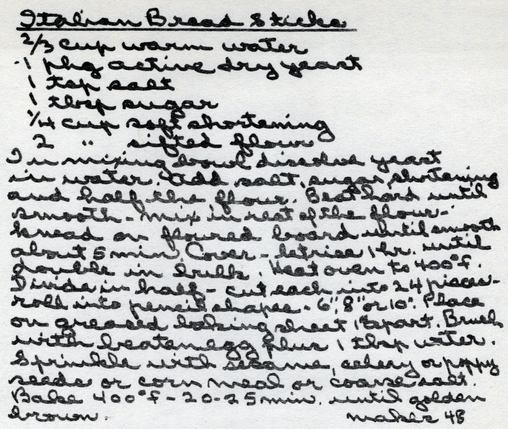 Italian Bread Sticks
2/3 cup warm water
1 pkg active dry yeast
1 tsp salt
1 tbsp sugar
1/4 cup soft shortening
2 " sifted flour
In mixing bowl dissolve yeast
in water. Add salt, sugar, shortening
and half the flour. Beat hard until
smooth - mix in rest of the flour -
knead on floured board until smooth
about 5 min. Cover - let rise 1 hr. until
double in bulk. Heat oven to 400°F.
Divide in half - cut each into 24 pieces -
roll into pencil shapes - 6", 8" or 10". Place
on greased baking sheet 1" apart. Brush
with beaten egg plus 1 tbsp water.
Sprinkle with sesame, celery or poppy
seeds or corn meal or coarse salt.
Bake 400°F - 20-25 min. until golden
brown. makes 48